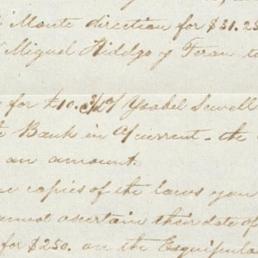 Monte direction for $31.25
Miguel Hidalgo y Teran to
for $10. Ysabel Sewell
Bank in Current - the
an amount.
copies of the laws you
must ascertain their date of
for $250. on the Esquipula